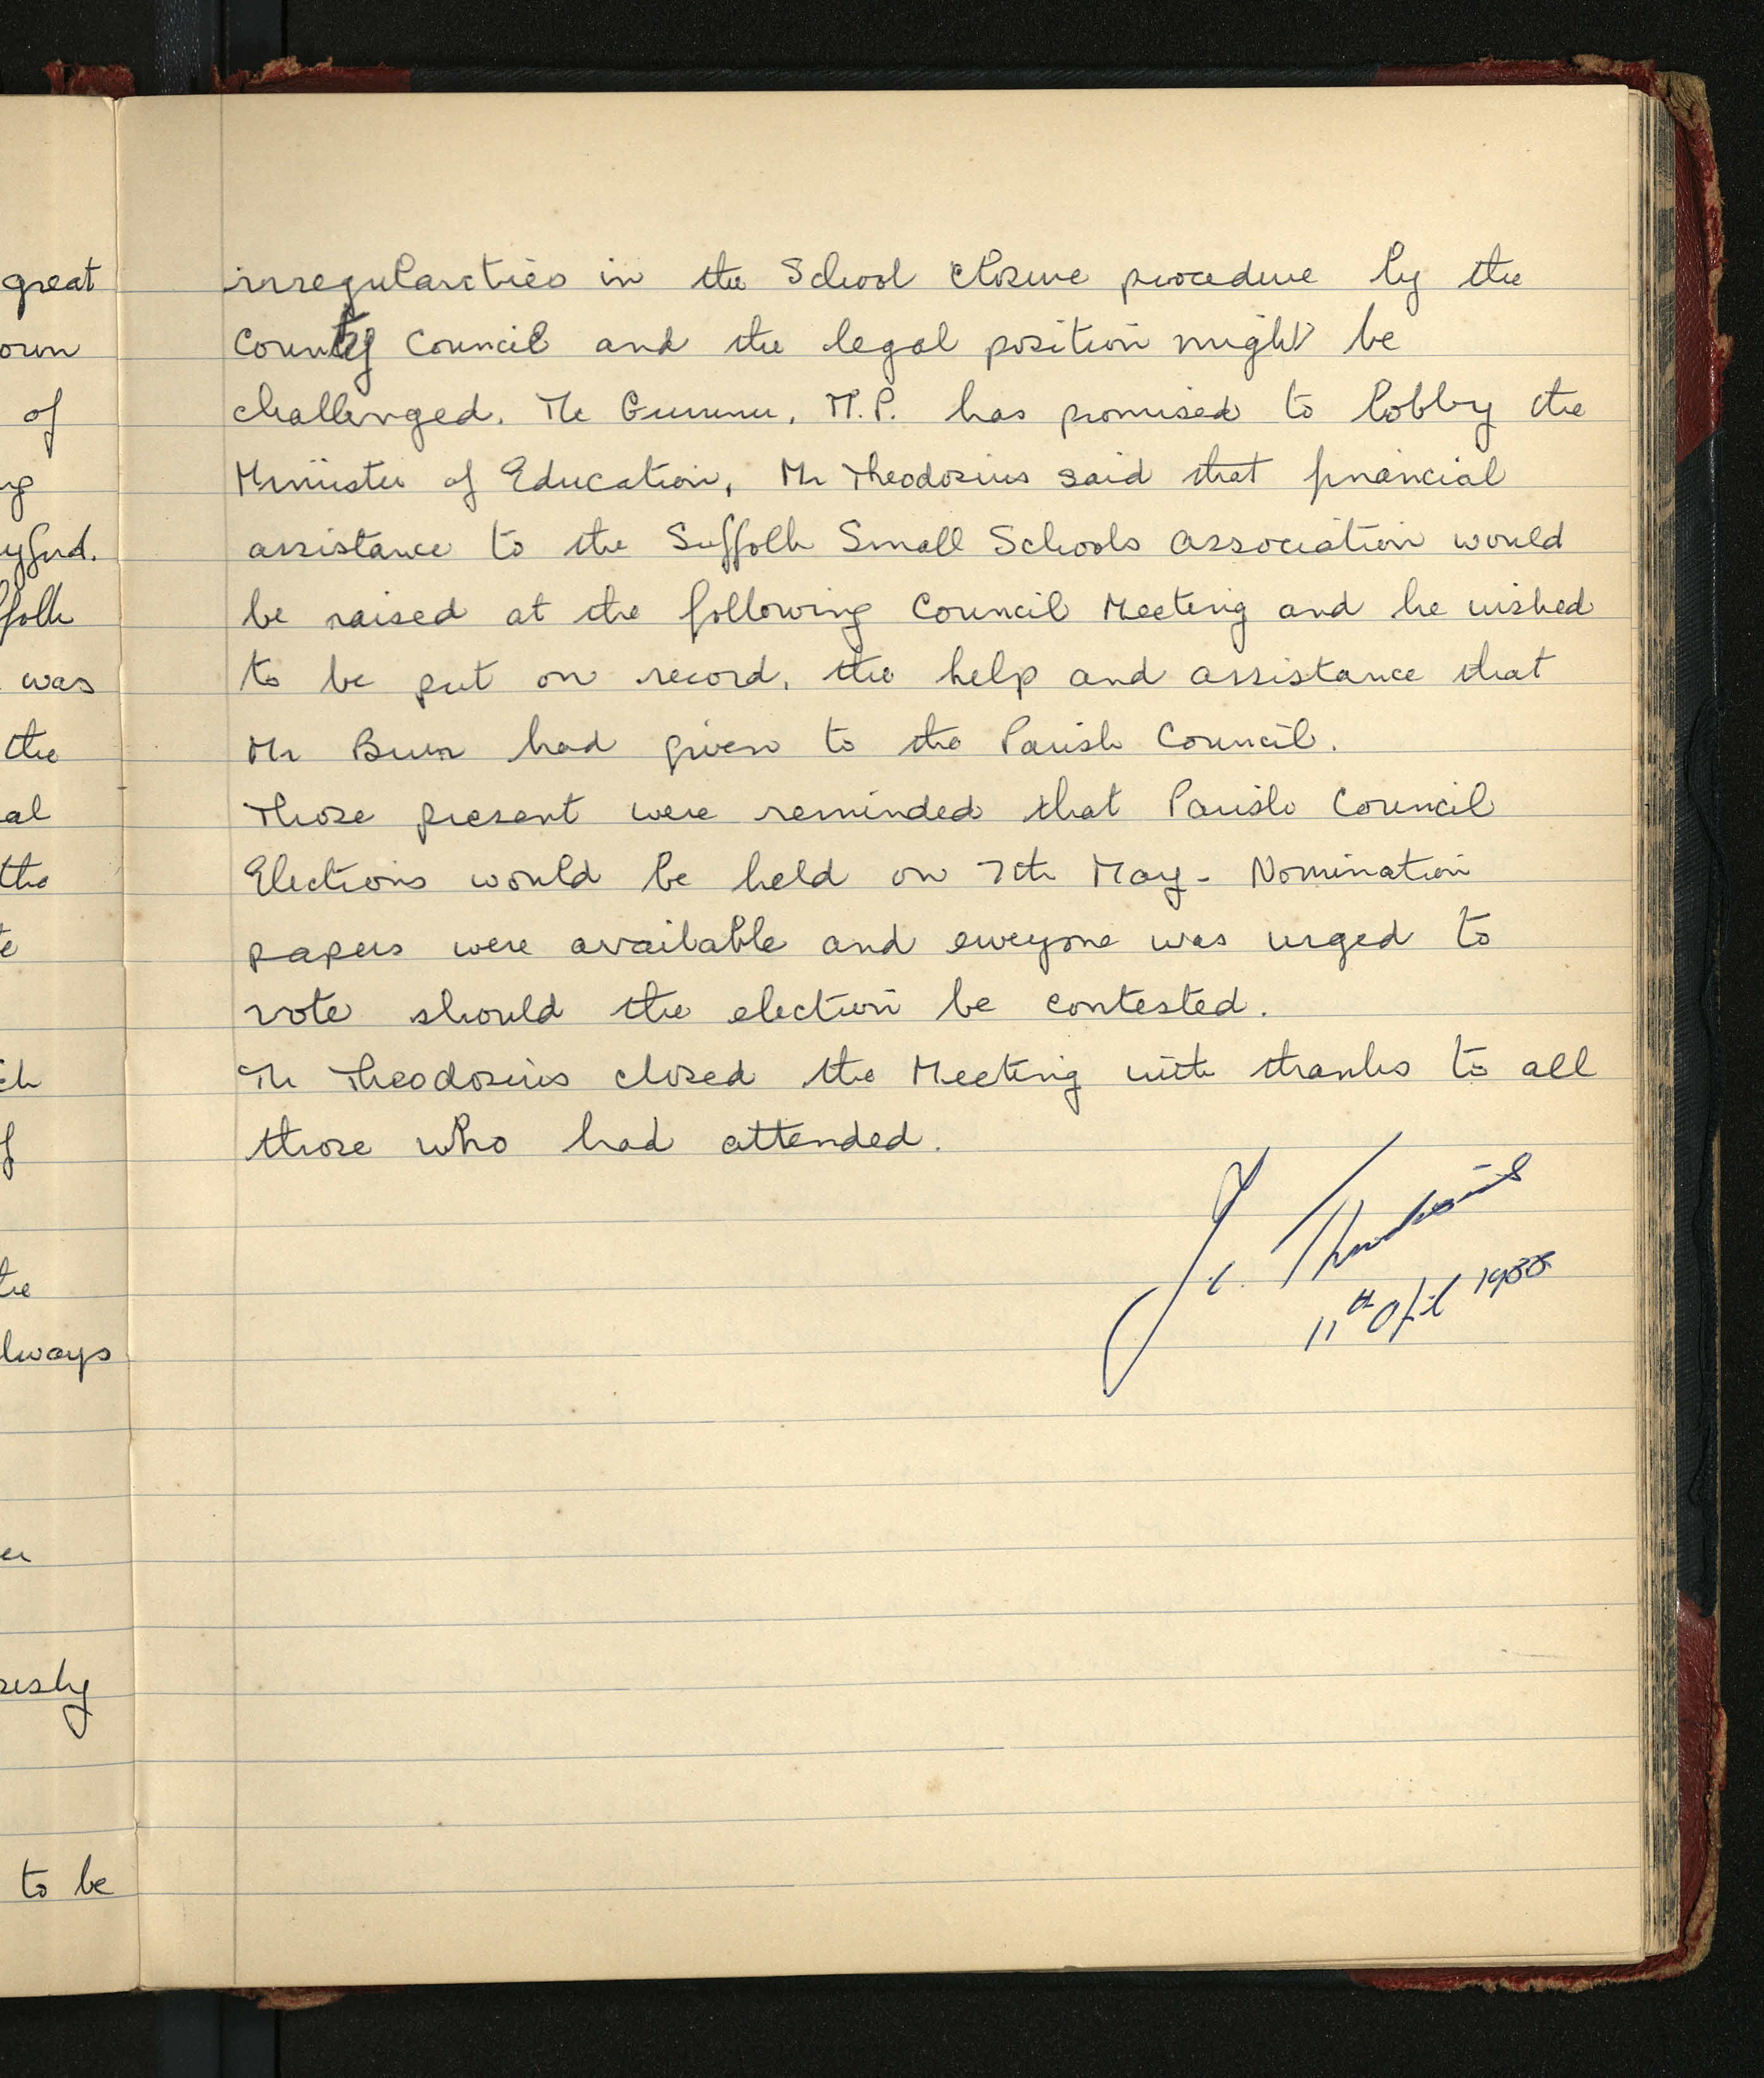 great
own
of
was
the
al
the
lways
to be
irregularities in the School closure procedure by the
County Council and the legal position might be
challenged. Mr Gummer, M.P. has promised to lobby the
Minister of Education, Mr Theodosius said that financial
assistance to the Suffolk Small Schools Association would
be raised at the following Council Meeting and he wished
to be put on record, the help and assistance that
Mr had given to the Parish Council.
Those present were reminded that Parish Council
Elections would be held on 7th May - Nomination
papers were available and everyone was urged to
vote should the election be contested.
Mr Theodosius closed the Meeting with thanks to all
those who had attended.
J. C. Theodosius
11th April 1988